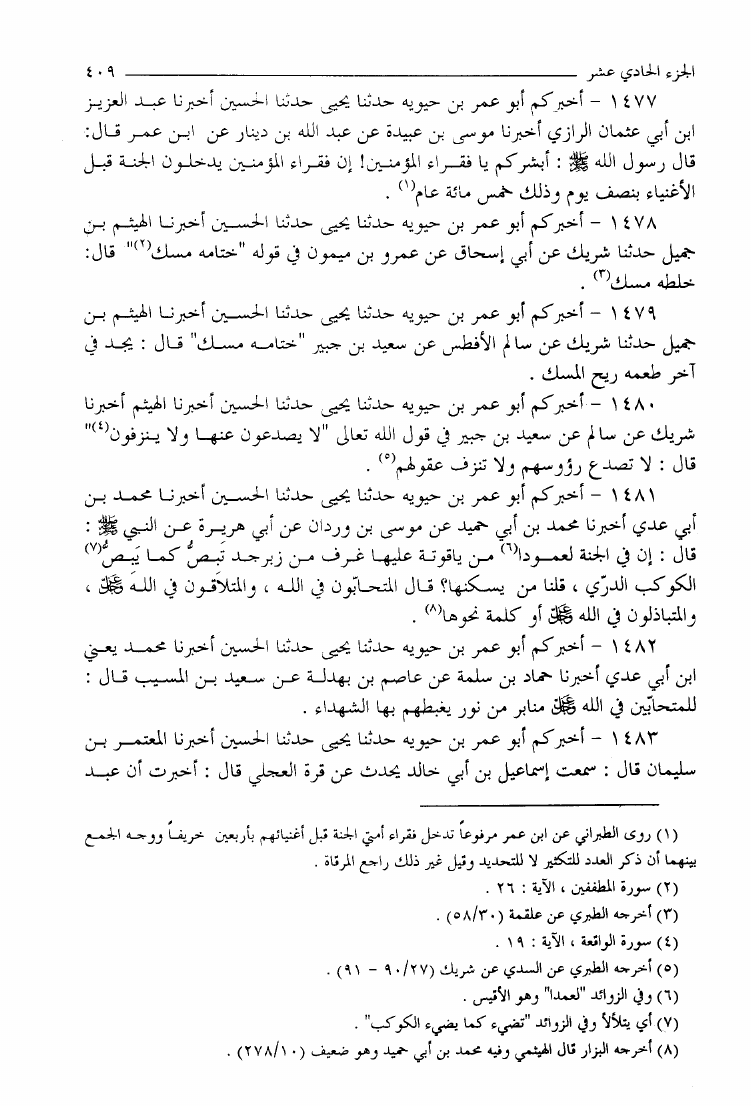 الجزء الحادي عشر ٤٠٩
١٤٧٧ - أخبركم أبو عمر بن حيويه حدثنا يحيى حدثنا الحسين أخبرنا عبد العزيز
ابن أبي عثمان الرازي أخبرنا موسى بن عبيدة عن عبد الله بن دينار عن ابن عمر قال:
قال رسول الله ﷺ : أبشركم يا فقراء المؤمنين! إن فقراء المؤمنين يدخلون الجنة قبل
الأغنياء بنصف يوم وذلك خمس مائة عام(١) .
١٤٧٨ - أخبركم أبو عمر بن حيويه حدثنا يحيى حدثنا الحسين أخبرنا الهيثم بن
جميل حدثنا شريك عن أبي إسحاق عن عمرو بن ميمون في قوله "ختامه مسك(٢)" قال:
خلطه مسك(٣) .
١٤٧٩ - أخبركم أبو عمر بن حيويه حدثنا يحيى حدثنا الحسين أخبرنا الهيثم بن
جميل حدثنا شريك عن سالم الأفطس عن سعيد بن جبير "ختامه مسك" قال : يجد في
آخر طعمه ريح المسك .
١٤٨٠ - أخبركم أبو عمر بن حيويه حدثنا يحيى حدثنا الحسين أخبرنا الهيثم أخبرنا
شريك عن سالم عن سعيد بن جبير في قول الله تعالى "لا يصدعون عنها ولا ينزفون(٤)"
قال : لا تصدع رؤوسهم ولا تنزف عقولهم(٥) .
١٤٨١ - أخبركم أبو عمر بن حيويه حدثنا يحيى حدثنا الحسين أخبرنا محمد بن
أبي عدي أخبرنا محمد بن أبي حميد عن موسى بن وردان عن أبي هريرة عن النبي ﷺ :
قال : إن في الجنة لعمودا(٦) من ياقوتة عليها غرف من زبرجد تبصُّ كما يَبصُّ(٧)
الكوكب الدرّي ، قلنا من يسكنها؟ قال المتحابّون في الله ، والمتلاقون في الله ﷻ ،
والمتباذلون في الله ﷻ أو كلمة نحوها(٨) .
١٤٨٢ - أخبركم أبو عمر بن حيويه حدثنا يحيى حدثنا الحسين أخبرنا محمد يعني
ابن أبي عدي أخبرنا حماد بن سلمة عن عاصم بن بهدلة عن سعيد بن المسيب قال :
للمتحابّين في الله ﷻ منابر من نور يغبطهم بها الشهداء .
١٤٨٣ - أخبركم أبو عمر بن حيويه حدثنا يحيى حدثنا الحسين أخبرنا المعتمر بن
سليمان قال : سمعت إسماعيل بن أبي خالد يحدث عن قرة العجلي قال : أخبرت أن عبد
(١) روى الطبراني عن ابن عمر مرفوعاً تدخل فقراء أمتي الجنة قبل أغنيائهم بأربعين خريفاً ووجه الجمع
بينهما أن ذكر العدد للتكثير لا للتحديد وقيل غير ذلك راجع المرقاة .
(٢) سورة المطففين ، الآية : ٢٦ .
(٣) أخرجه الطبري عن علقمة (٥٨/٣٠) .
(٤) سورة الواقعة ، الآية : ١٩ .
(٥) أخرجه الطبري عن السدي عن شريك (٩٠/٢٧ - ٩١) .
(٦) وفي الزوائد "لعمدا" وهو الأقيس .
(٧) أي يتلألأ وفي الزوائد "تضيء كما يضيء الكوكب" .
(٨) أخرجه البزار قال الهيثمي وفيه محمد بن أبي حميد وهو ضعيف (٢٧٨/١٠) .